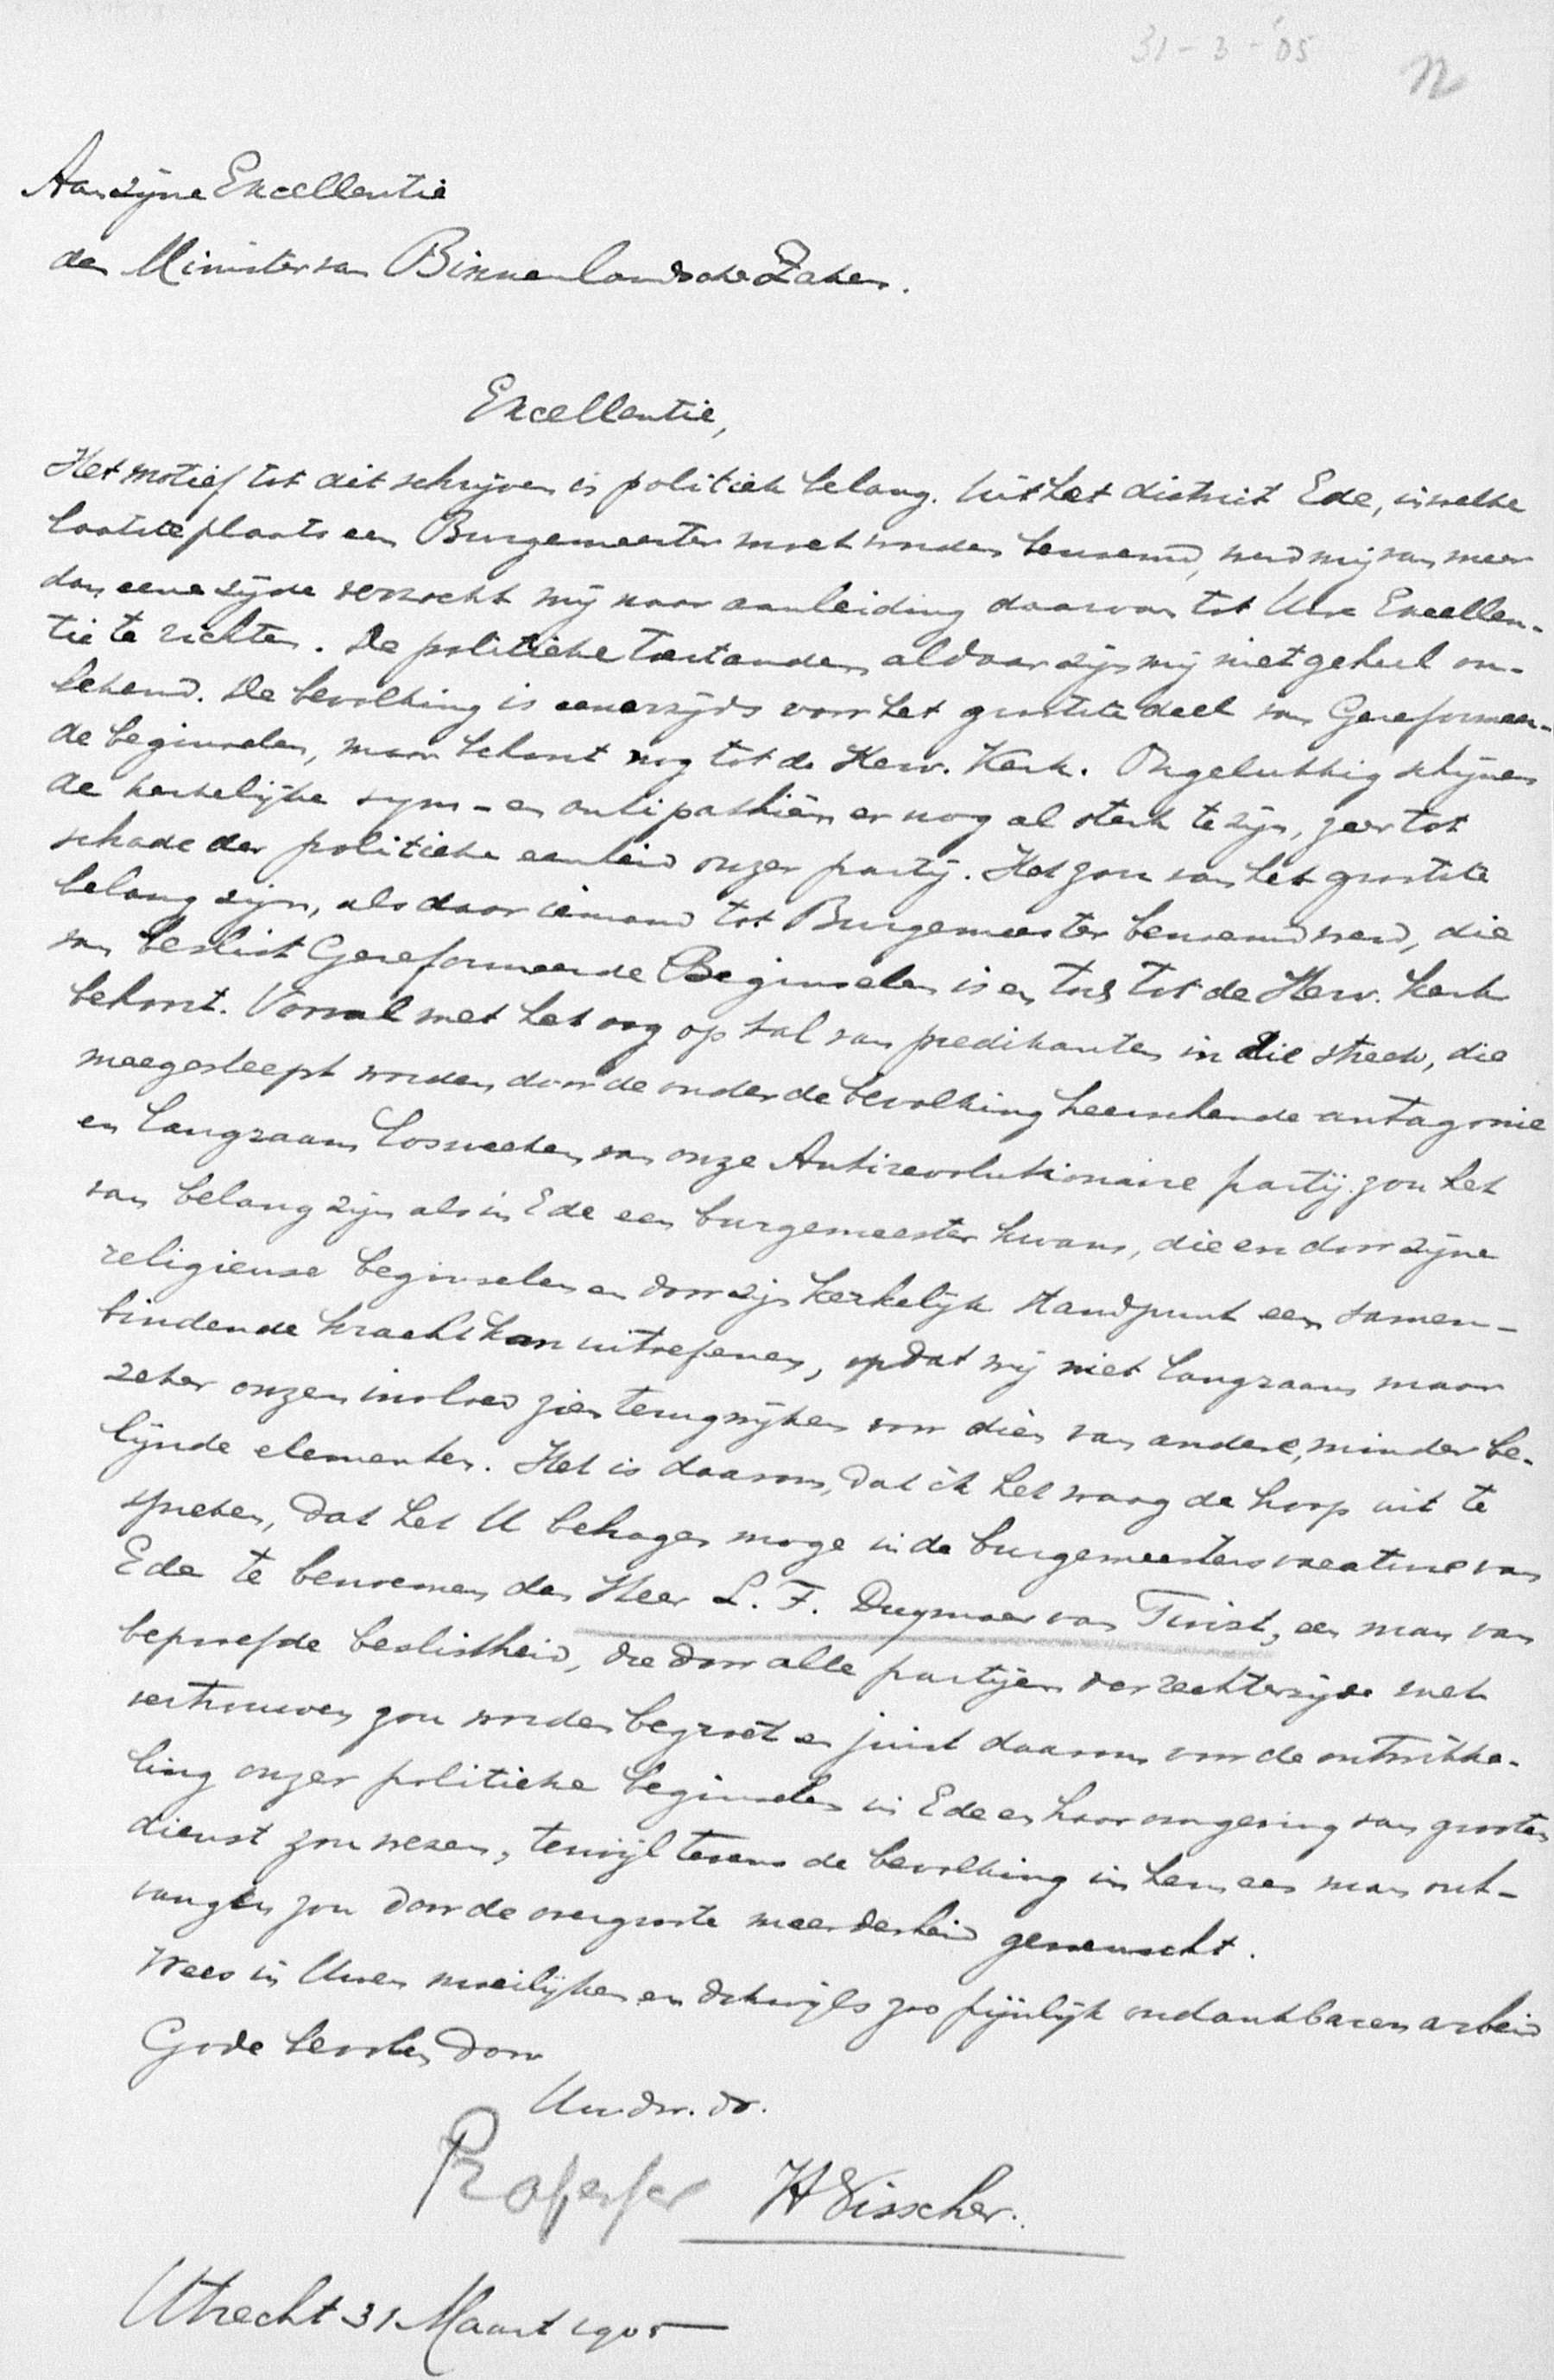 31-3-'05
Aan Zijne Excellentie
den Minister van Binnenlandsche Zaken.
Excellentie,
Het motief tot dit schrijven is politiek belang. Uit het district Ede, in welke
laatste plaats een Burgemeester moet worden benoemd, werd mij van meer
dan eene zijde verzocht mij naar aanleiding daarvan tot Uwe Excellen-
tie te richten. De politieke toestanden aldaar zijn mij niet geheel on-
bekend. De bevolking is eenerzijds voor het grootste deel van Gereformeer-
de beginselen, maar behoort nog tot de Herv. Kerk. Ongelukkig schijnen
de kerkelijke sym- en antipathiën er nog al sterk te zijn, zeer tot
schade der politieke eenheid onzer partij. Het zou van het grootste
belang zijn, als daar iemand tot Burgemeester benoemd werd, die
van beslist Gereformeerde Beginselen is en toch tot de Herv. Kerk
behoort. Vooral met het oog op tal van predikanten in die streek, die
meegesleept worden door de onder de bevolking heerschende antagonie
en langzaam losweeken van onze Antirevolutionaire partij zou het
van belang zijn als in Ede een burgemeester kwam, die en door zijne
religieuse beginselen en door zijn kerkelijk standpunt een samen-
bindende kracht kan uitoefenen, opdat wij niet langzaam maar
zeker onzen invloed zien terugwijken voor dien van andere, minder be-
lijnde elementen. Het is daarom, dat ik het waag de hoop uit te
spreken, dat het U behagen moge in de burgemeestersvacature van
Ede te benoemen den Heer L. F. Duymaer van Twist, een man van
beproefde beslistheid, die door alle partijen der rechterzijde met
vertrouwen zou worden begroet en juist daarom voor de ontwikke-
ling onzer politieke beginselen in Ede en haar omgeving van grooten
dienst zou wezen, terwijl tevens de bevolking in hem een man ont-
vangen zou door de overgroote meerderheid gewenscht.
Wees in Uwen moeilijken en dikwijls zoo pijnlijk ondankbaren arbeid
Gode bevolen door
Uw dw. dr.
Professor H Visscher.
Utrecht 31 Maart 1905